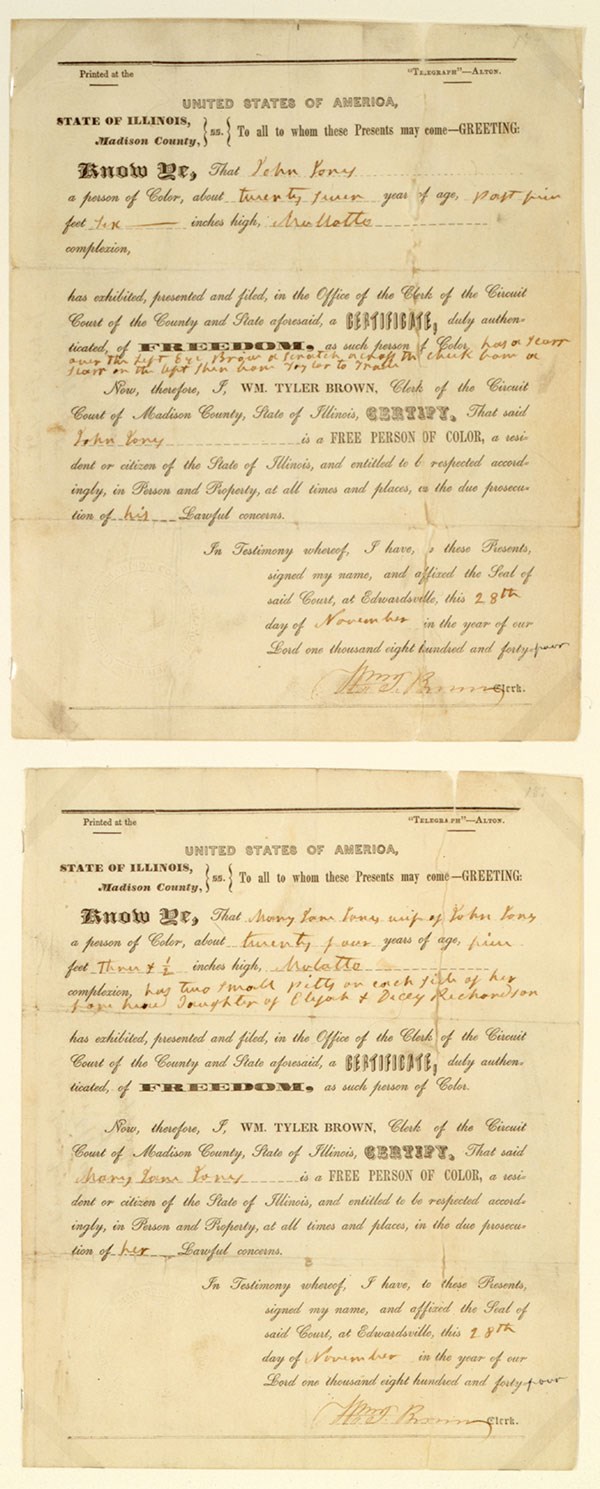 Printed at the "TELEGRAPH"—ALTON.
UNITED STATES OF AMERICA,
STATE OF ILLINOIS,
Madison County, } ss. { To all to whom these Presents may come—GREETING:
Know Ye, That John Jones
a person of Color, about twenty seven years of age, five
feet six inches high, Mullatto
complexion,
has exhibited, presented and filed, in the Office of the Clerk of the Circuit
Court of the County and State aforesaid, a CERTIFICATE, duly authen-
ticated, of FREEDOM, as such person of Color, has a Scarr
over the Left Eye Brow a Scratch across the cheek bone a
Scarr on the left Shin bone
Now, therefore, I, WM. TYLER BROWN, Clerk of the Circuit
Court of Madison County, State of Illinois, CERTIFY, That said
John Jones is a FREE PERSON OF COLOR, a resi-
dent or citizen of the State of Illinois, and entitled to be respected accord-
ingly, in Person and Property, at all times and places, in the due prosecu-
tion of his Lawful concerns.
In Testimony whereof, I have, to these Presents,
signed my name, and affixed the Seal of
said Court, at Edwardsville, this 28th
day of November in the year of our
Lord one thousand eight hundred and forty-four
Wm. T. Brown Clerk.
Printed at the "TELEGRAPH"—ALTON.
UNITED STATES OF AMERICA,
STATE OF ILLINOIS,
Madison County, } ss. { To all to whom these Presents may come—GREETING:
Know Ye, That Mary Jane Jones wife of John Jones
a person of Color, about twenty four years of age, five
feet Three & ½ inches high, Molatto
complexion, has two small pitts on each side of her
Daughter of Elijah & Dicey Richardson
has exhibited, presented and filed, in the Office of the Clerk of the Circuit
Court of the County and State aforesaid, a CERTIFICATE, duly authen-
ticated, of FREEDOM, as such person of Color.
Now, therefore, I, WM. TYLER BROWN, Clerk of the Circuit
Court of Madison County, State of Illinois, CERTIFY, That said
Mary Jane Jones is a FREE PERSON OF COLOR, a resi-
dent or citizen of the State of Illinois, and entitled to be respected accord-
ingly, in Person and Property, at all times and places, in the due prosecu-
tion of her Lawful concerns.
In Testimony whereof, I have, to these Presents,
signed my name, and affixed the Seal of
said Court, at Edwardsville, this 28th
day of November in the year of our
Lord one thousand eight hundred and forty-four
Wm. T. Brown Clerk.